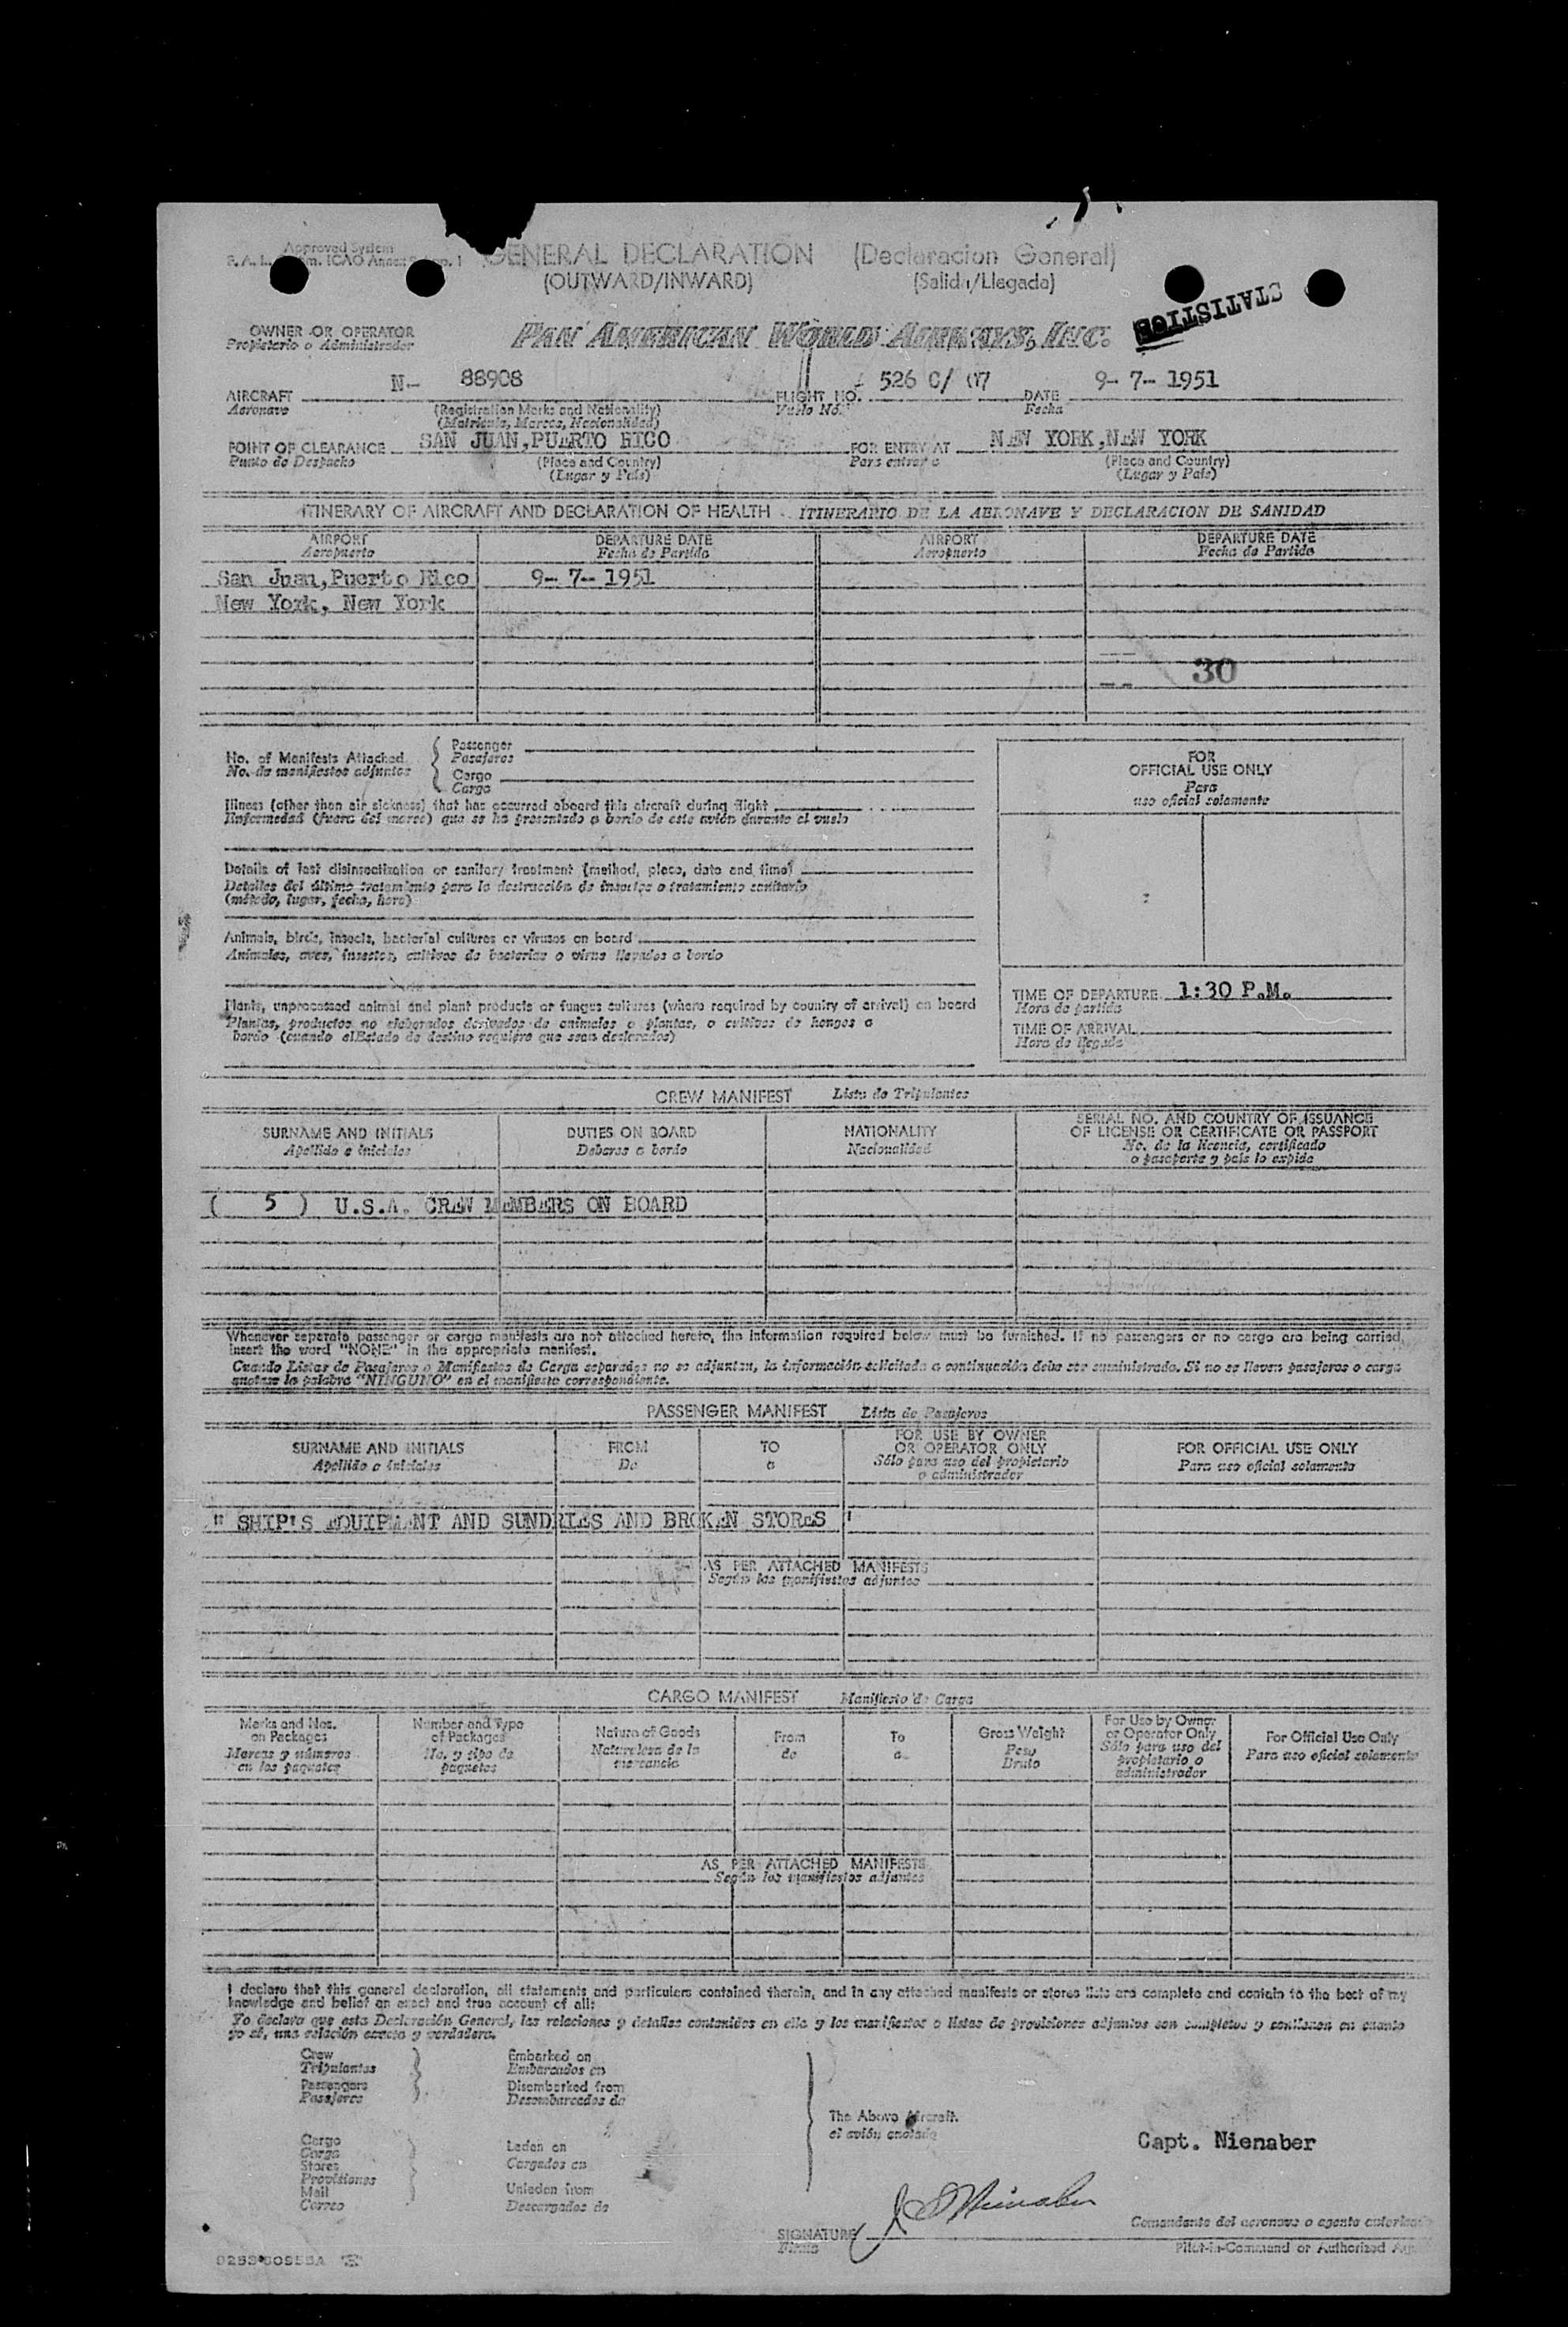 Approved System
GENERAL DECLARATION (Declaracion General)
(OUTWARD/INWARD) (Salida/Llegada)
STATISTICS
OWNER OR OPERATOR
Propietario o Administrador
PAN AMERICAN WORLD AIRWAYS, INC.
AIRCRAFT N- 88908 FLIGHT NO. 526 DATE 9- 7- 1951
Aeronave (Registration Marks and Nationality) Vuelo No. Fecha
(Matricula, Marcas, Nacionalidad)
POINT OF CLEARANCE SAN JUAN,PUERTO RICO FOR ENTRY AT NEW YORK,NEW YORK
Punto de Despacho (Place and Country) Para entrar a (Place and Country)
(Lugar y País) (Lugar y País)
ITINERARY OF AIRCRAFT AND DECLARATION OF HEALTH - ITINERARIO DE LA AERONAVE Y DECLARACION DE SANIDAD
AIRPORT DEPARTURE DATE AIRPORT DEPARTURE DATE
Aeropuerto Fecha de Partida Aeropuerto Fecha de Partida
San Juan,Puerto Rico 9- 7- 1951
New York, New York
30
No. of Manifests Attached
No. de manifiestos adjuntos
Passenger
Pasajeros
Cargo
Carga
Illness (other than air sickness) that has occurred aboard this aircraft during flight
Enfermedad (fuera del mareo) que se ha presentado a bordo de este avión durante el vuelo
Details of last disinsectization or sanitary treatment (method, place, date and time)
Detalles del último tratamiento para la destrucción de insectos o tratamiento sanitario
(método, lugar, fecha, hora)
Animals, birds, insects, bacterial cultures or viruses on board
Animales, aves, insectos, cultivos de bacterias o virus llevados a bordo
Plants, unprocessed animal and plant products or fungus cultures (where required by country of arrival) on board
Plantas, productos no elaborados derivados de animales o plantas, o cultivos de hongos a
bordo (cuando el Estado de destino requiera que sean declarados)
FOR
OFFICIAL USE ONLY
Para
uso oficial solamente
TIME OF DEPARTURE 1:30 P.M.
Hora de partida
TIME OF ARRIVAL
Hora de llegada
CREW MANIFEST Lista de Tripulantes
SURNAME AND INITIALS DUTIES ON BOARD NATIONALITY SERIAL NO. AND COUNTRY OF ISSUANCE
OF LICENSE OR CERTIFICATE OR PASSPORT
Apellido e iniciales Deberes a bordo Nacionalidad No. de la licencia, certificado
o pasaporte y país lo expide
( 5 ) U.S.A. CREW MEMBERS ON BOARD
Whenever separate passenger or cargo manifests are not attached hereto, the information required below must be furnished. If no passengers or no cargo are being carried,
insert the word "NONE" in the appropriate manifest.
Cuando Listas de Pasajeros o Manifiestos de Carga separados no se adjuntan, la información solicitada a continuación debe ser suministrada. Si no se llevan pasajeros o carga
anotase la palabra "NINGUNO" en el manifiesto correspondiente.
PASSENGER MANIFEST Lista de Pasajeros
SURNAME AND INITIALS FROM TO FOR USE BY OWNER
OR OPERATOR ONLY FOR OFFICIAL USE ONLY
Apellido e iniciales De a Sólo para uso del propietario
o administrador Para uso oficial solamente
" SHIP'S EQUIPMENT AND SUNDRIES AND BROKEN STORES "
AS PER ATTACHED MANIFESTS
Según los manifiestos adjuntos
CARGO MANIFEST Manifiesto de Carga
Marks and Nos.
on Packages
Marcas y números
en los paquetes
Number and Type
of Packages
No. y tipo de
paquetes
Nature of Goods
Naturaleza de la
mercancía
From
de
To
a
Gross Weight
Peso
Bruto
For Use by Owner
or Operator Only
Sólo para uso del
propietario o
administrador
For Official Use Only
Para uso oficial solamente
AS PER ATTACHED MANIFESTS
Según los manifiestos adjuntos
I declare that this general declaration, all statements and particulars contained therein, and in any attached manifests or stores lists are complete and contain to the best of my
knowledge and belief an exact and true account of all:
Yo declaro que esta Declaración General, las relaciones y detalles contenidos en ella y los manifiestos o listas de provisiones adjuntos son completos y contienen en cuanto
yo sé, una relación exacta y verdadera.
Crew
Tripulantes
Passengers
Pasajeros
Embarked on
Embarcados en
Disembarked from
Desembarcados de
Cargo
Carga
Stores
Provisiones
Mail
Correo
Laden on
Cargados en
Unladen from
Descargados de
The Above Aircraft.
el avión anotado
Capt. Nienaber
SIGNATURE
Firma
Nienaber
Comandante del aeronave o agente
Pilot-in-Command or Authorized